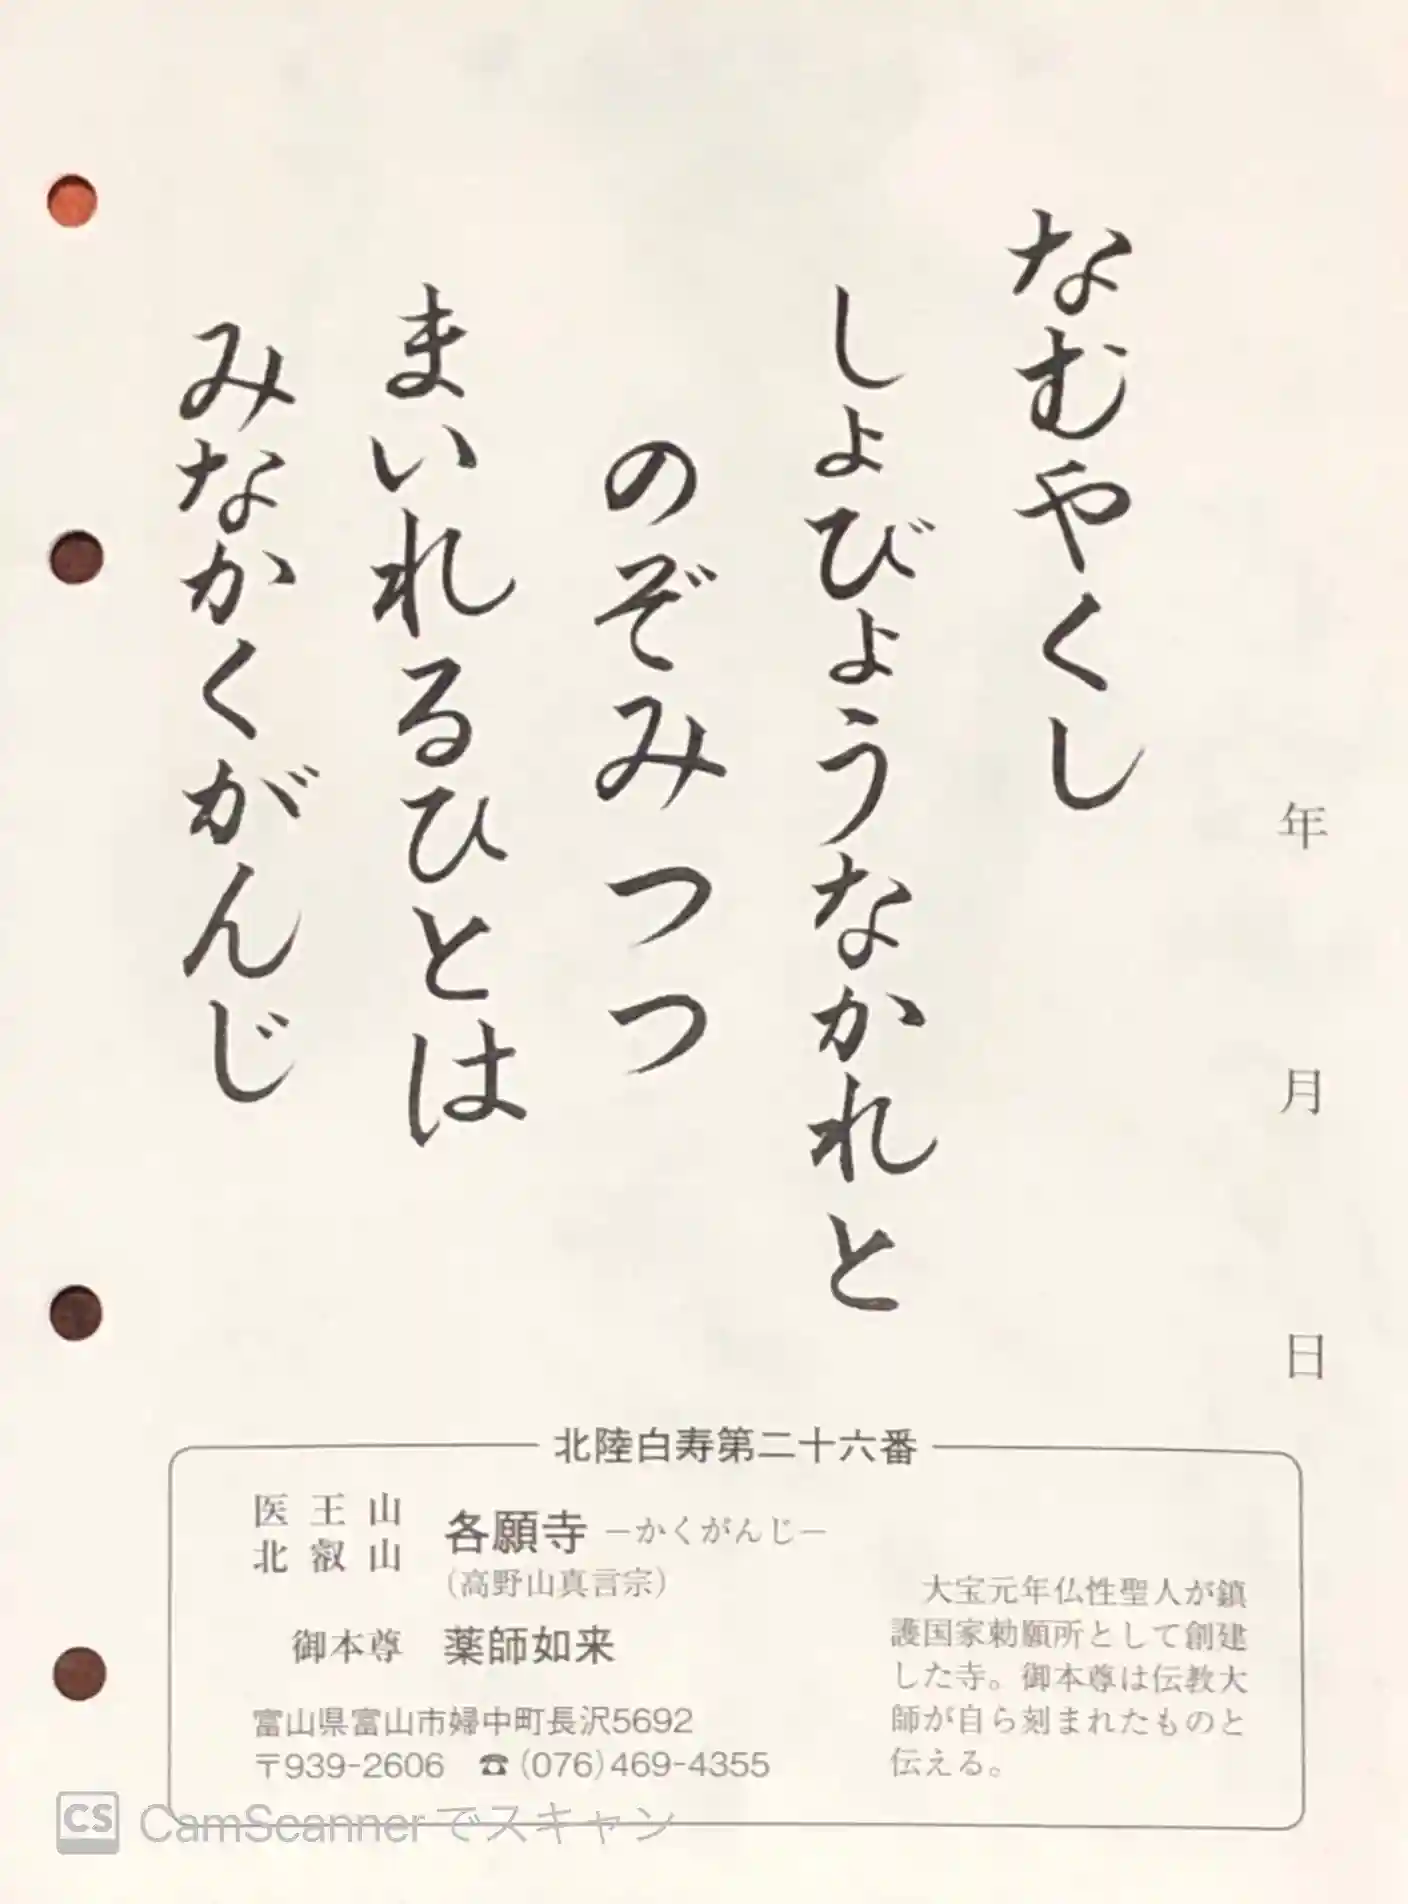 年 月 日
なむやくし
しょびょうなかれと
のぞみつつ
まいれるひとは
みなかくがんじ
北陸白寿第二十六番
医王山
北叡山
各願寺 －かくがんじ－
(高野山真言宗)
御本尊 薬師如来
富山県富山市婦中町長沢5692
〒939-2606 ☎(076)469-4355
大宝元年仏性聖人が鎮
護国家勅願所として創建
した寺。御本尊は伝教大
師が自ら刻まれたものと
伝える。
CS CamScannerでスキャン